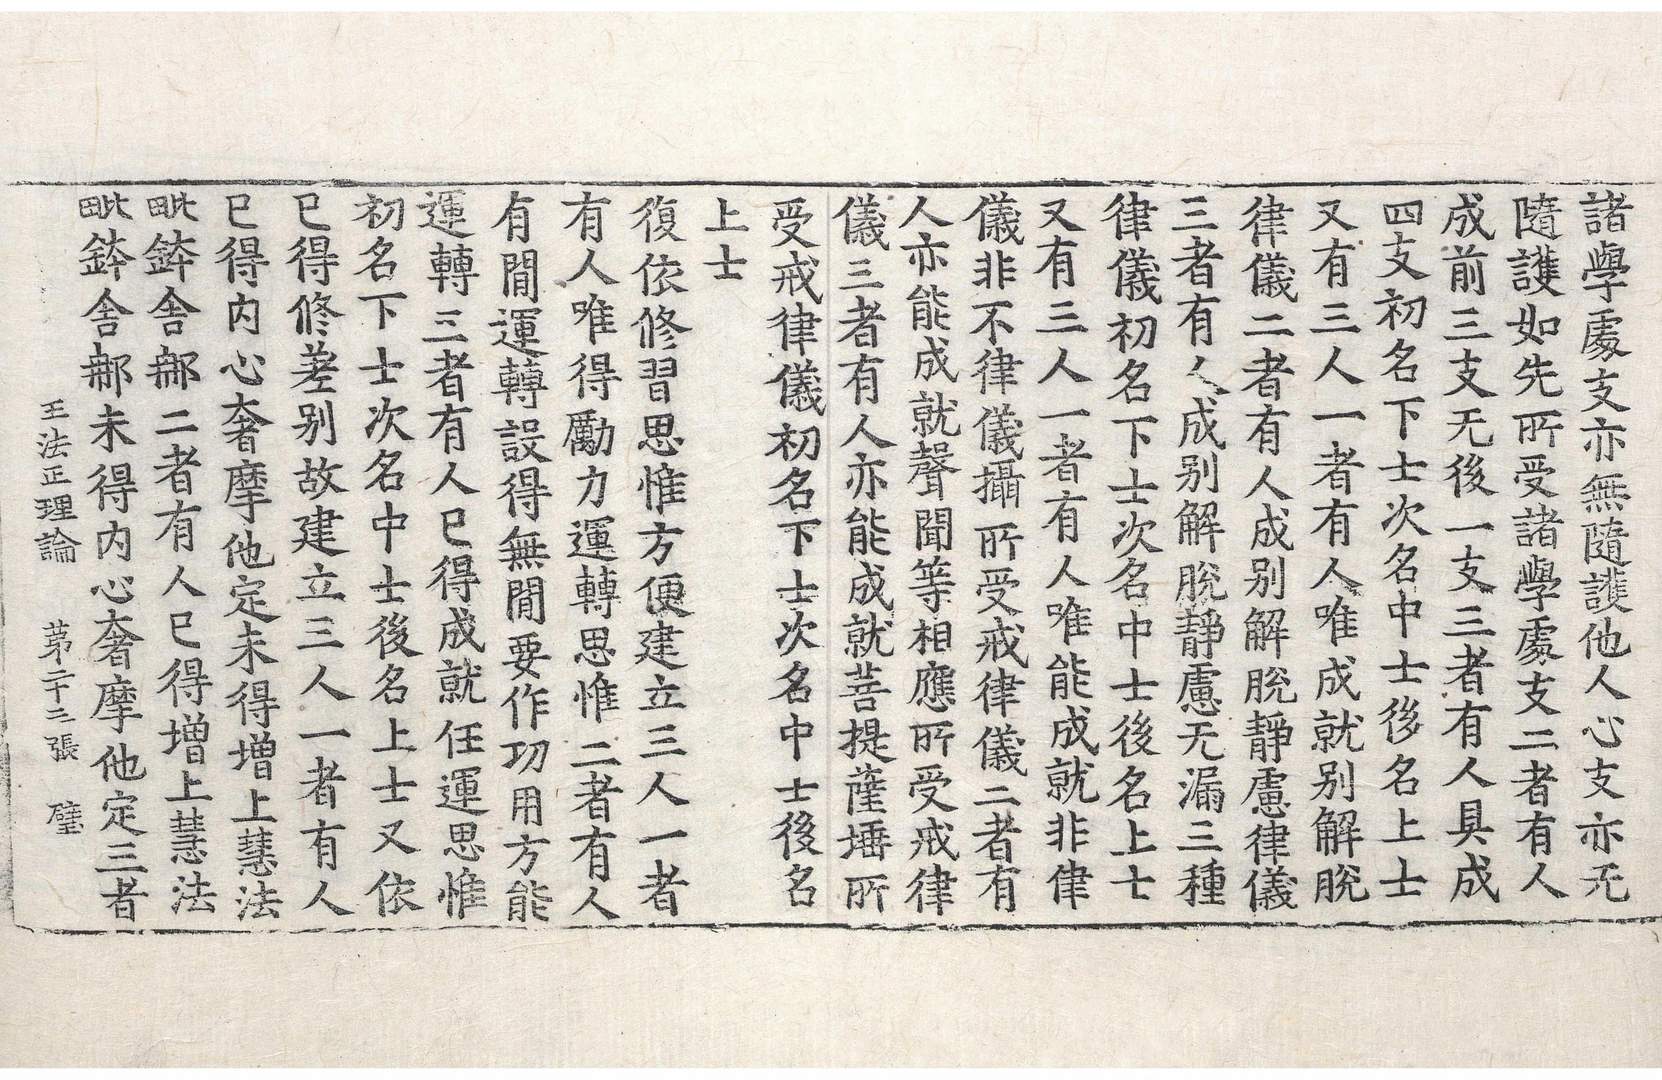 諸學處支亦無隨護他人心支亦无
隨護如先所受諸學處支二者有人
成前三支无後一支三者有人具成
四支初名下士次名中士後名上士
又有三人一者有人唯成就別解脫
律儀二者有人成別解脫靜慮律儀
三者有人成別解脫靜慮无漏三種
律儀初名下士次名中士後名上士
又有三人一者有人唯能成就非律
儀非不律儀攝所受戒律儀二者有
人亦能成就聲聞等相應所受戒律
儀三者有人亦能成就菩提薩埵所
受戒律儀初名下士次名中士後名
上士
復依修習思惟方便建立三人一者
有人唯得勵力運轉思惟二者有人
有閒運轉設得無閒要作功用方能
運轉三者有人已得成就任運思惟
初名下士次名中士後名上士又依
已得修差別故建立三人一者有人
已得內心奢摩他定未得增上慧法
毗鉢舍那二者有人已得增上慧法
毗鉢舍那未得內心奢摩他定三者
王法正理論 第二十三張 璧